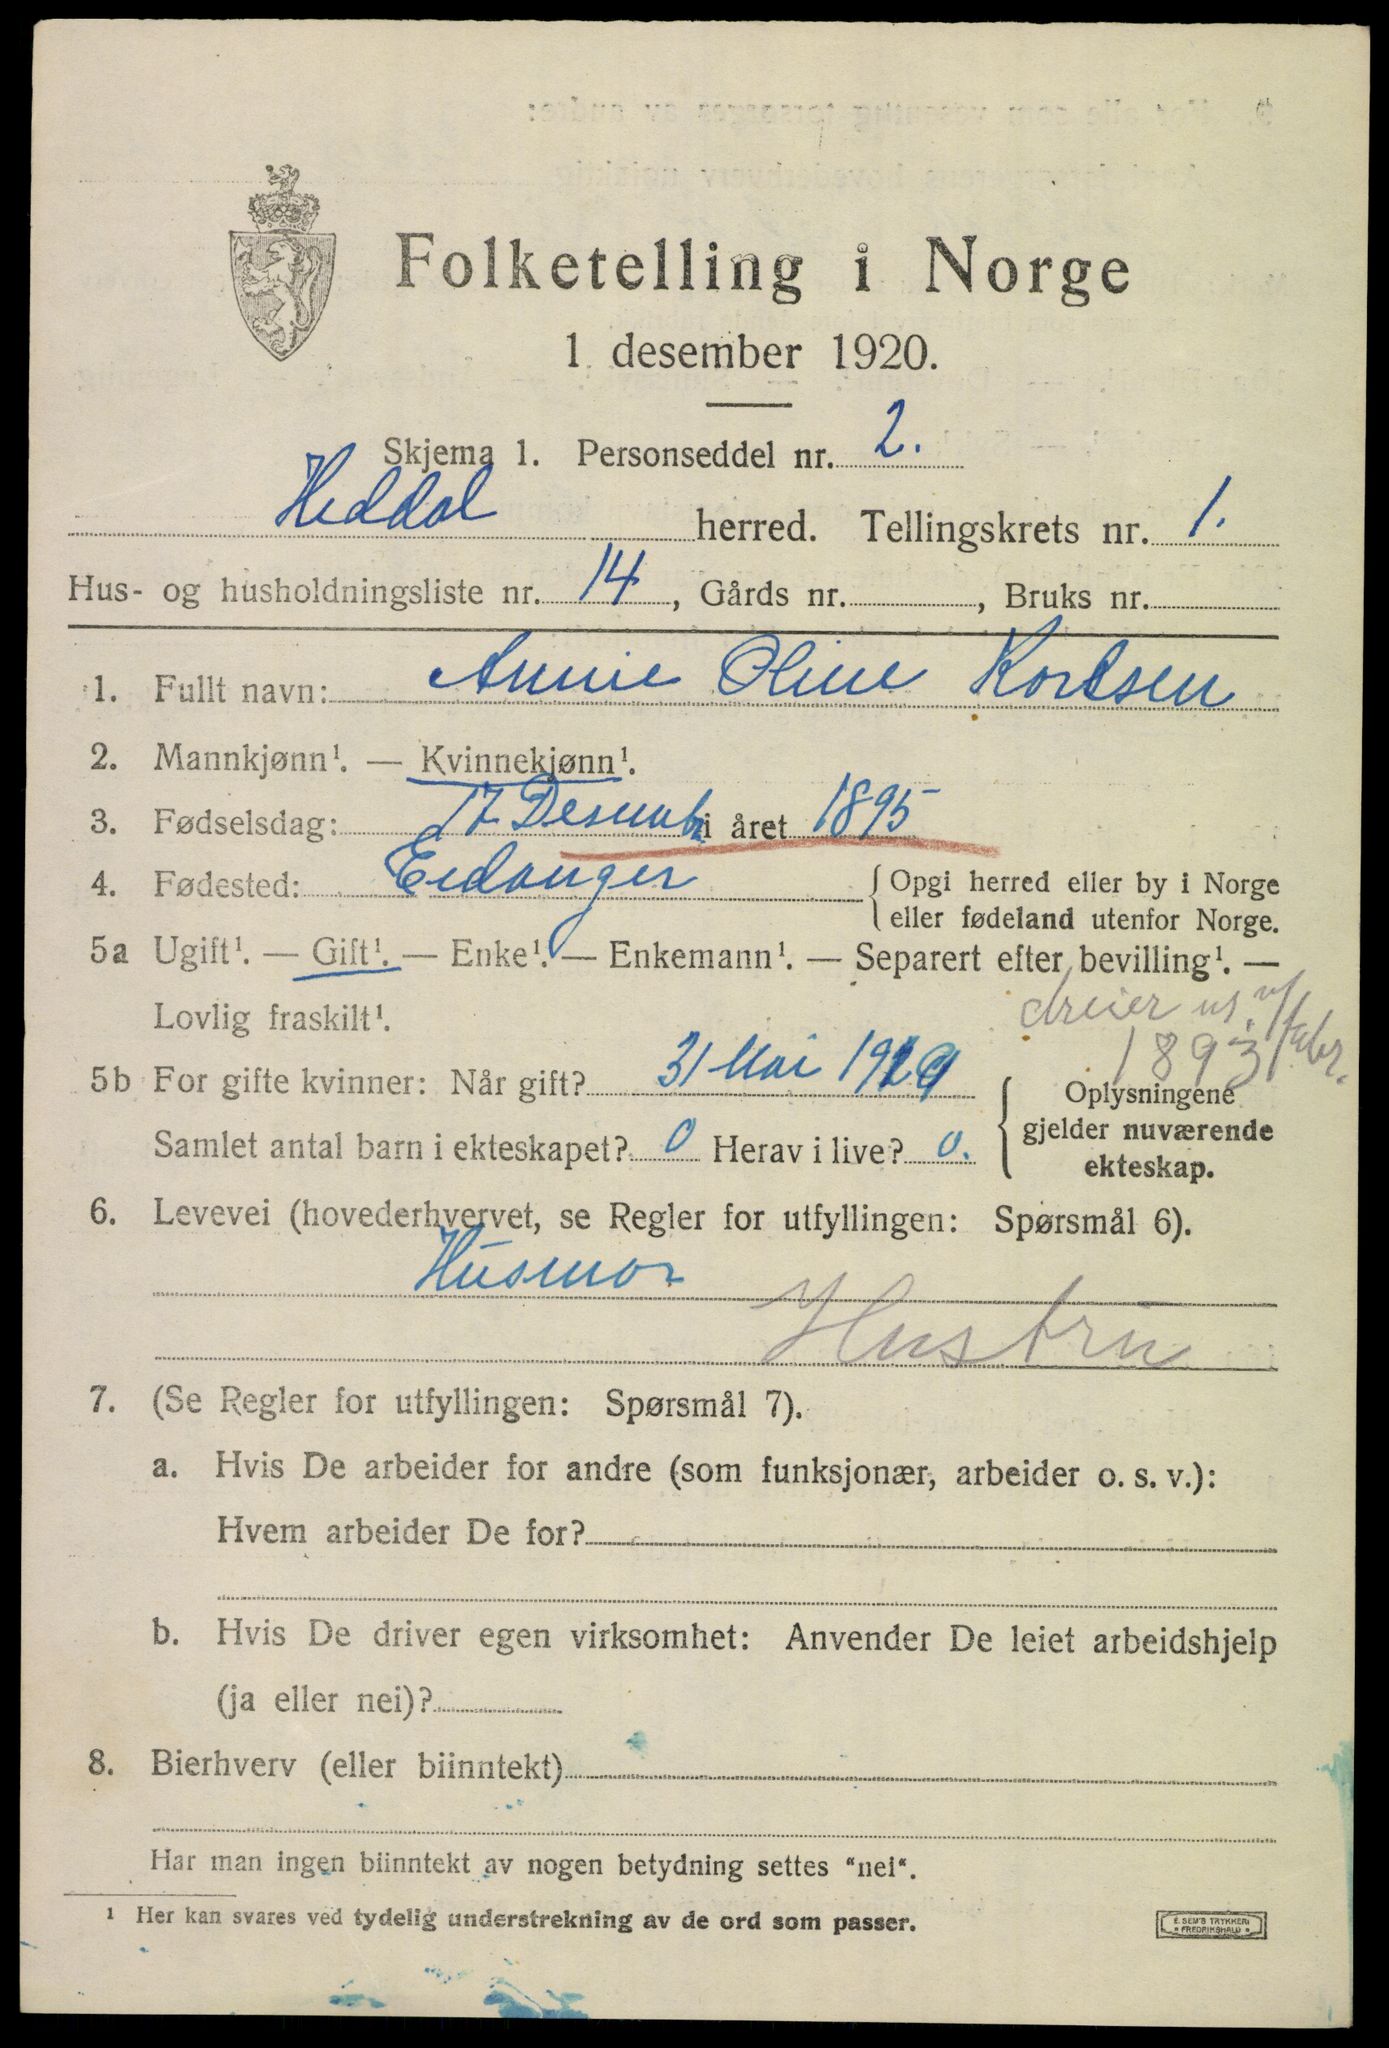 Folketelling i Norge
1 desember 1920.
Skjema 1. Personseddel nr. 2.
Heddal herred. Tellingskrets nr. 1.
Hus- og husholdningsliste nr. 14, Gårds nr. , Bruks nr.
1. Fullt navn: Annie Oline Kortsen
2. Mannkjønn¹. — Kvinnekjønn¹.
3. Fødselsdag: 17 Desemb i året 1895
4. Fødested: Eidanger { Opgi herred eller by i Norge
eller fødeland utenfor Norge.
5a Ugift¹. — Gift¹. — Enke¹. — Enkemann¹. — Separert efter bevilling¹. —
Lovlig fraskilt¹.
dreier
1893
5b For gifte kvinner: Når gift? 31 Mai 1920
Samlet antal barn i ekteskapet? 0 Herav i live? 0.
{ Oplysningene
gjelder nuværende
ekteskap.
6. Levevei (hovederhvervet, se Regler for utfyllingen: Spørsmål 6).
Husmor
Hustru
7. (Se Regler for utfyllingen: Spørsmål 7).
a. Hvis De arbeider for andre (som funksjonær, arbeider o. s. v.):
Hvem arbeider De for?
b. Hvis De driver egen virksomhet: Anvender De leiet arbeidshjelp
(ja eller nei)?
8. Bierhverv (eller biinntekt)
Har man ingen biinntekt av nogen betydning settes "nei".
¹ Her kan svares ved tydelig understrekning av de ord som passer.
E. SEM'S TRYKKERI
FREDRIKSHALD